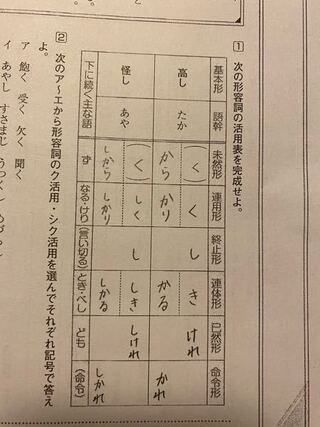 1 次の形容詞の活用表を完成せよ。
基本形 語幹 未然形 連用形 終止形 連体形 已然形 命令形
高し たか （く） く し き けれ
から かり かる かれ
怪し あや （く） しく し しき しけれ
しから しかり しかる しかれ
下に続く主な語 ず なる・けり （言い切る） とき・べし ども （命令）
2 次のア～エから形容詞のク活用・シク活用を選んでそれぞれ記号で答え
よ。
ア 飽く 受く 欠く 聞く
イ あやし すさまじ うつくし